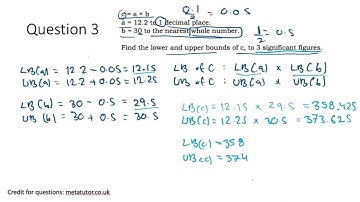 Question 3
c = a × b
a = 12.2 to 1 decimal place.
b = 30 to the nearest whole number.
Find the lower and upper bounds of c, to 3 significant figures.
0.1/2 = 0.05
1/2 = 0.5
LB(a) = 12.2 - 0.05 = 12.15
UB(a) = 12.2 + 0.05 = 12.25
LB(b) = 30 - 0.5 = 29.5
UB(b) = 30 + 0.5 = 30.5
LB of C : LB(a) × LB(b)
UB of C : UB(a) × UB(b)
LB(c) = 12.15 × 29.5 = 358.425
UB(c) = 12.25 × 30.5 = 373.625
LB(c) = 358
UB(c) = 374
Credit for questions: metatutor.co.uk